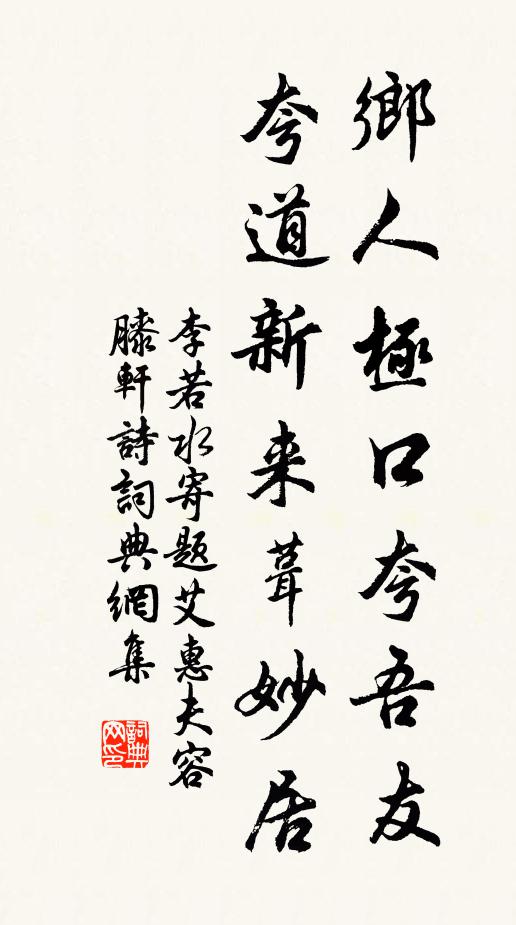 鄉人極口夸吾友
夸道新来葺妙居
李若水寄题艾惠夫容
膝軒詩詞典網集
詞典网印